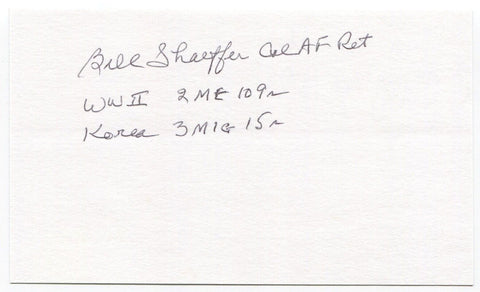 Bill Shaeffer Col AF Ret
WW II 2 ME 109s
Korea 3 MIG 15s